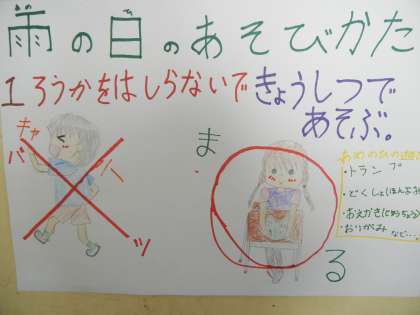 雨の日のあそびかた
あめ ひ
1 ろうかをはしらないできょうしつで
あそぶ。
キャ
バ
ツ
ま
る
あめのひの遊
・トランプ
・どくしょ(ほんよみ
・おえかき(じゆうちょう)
・おりがみ など…